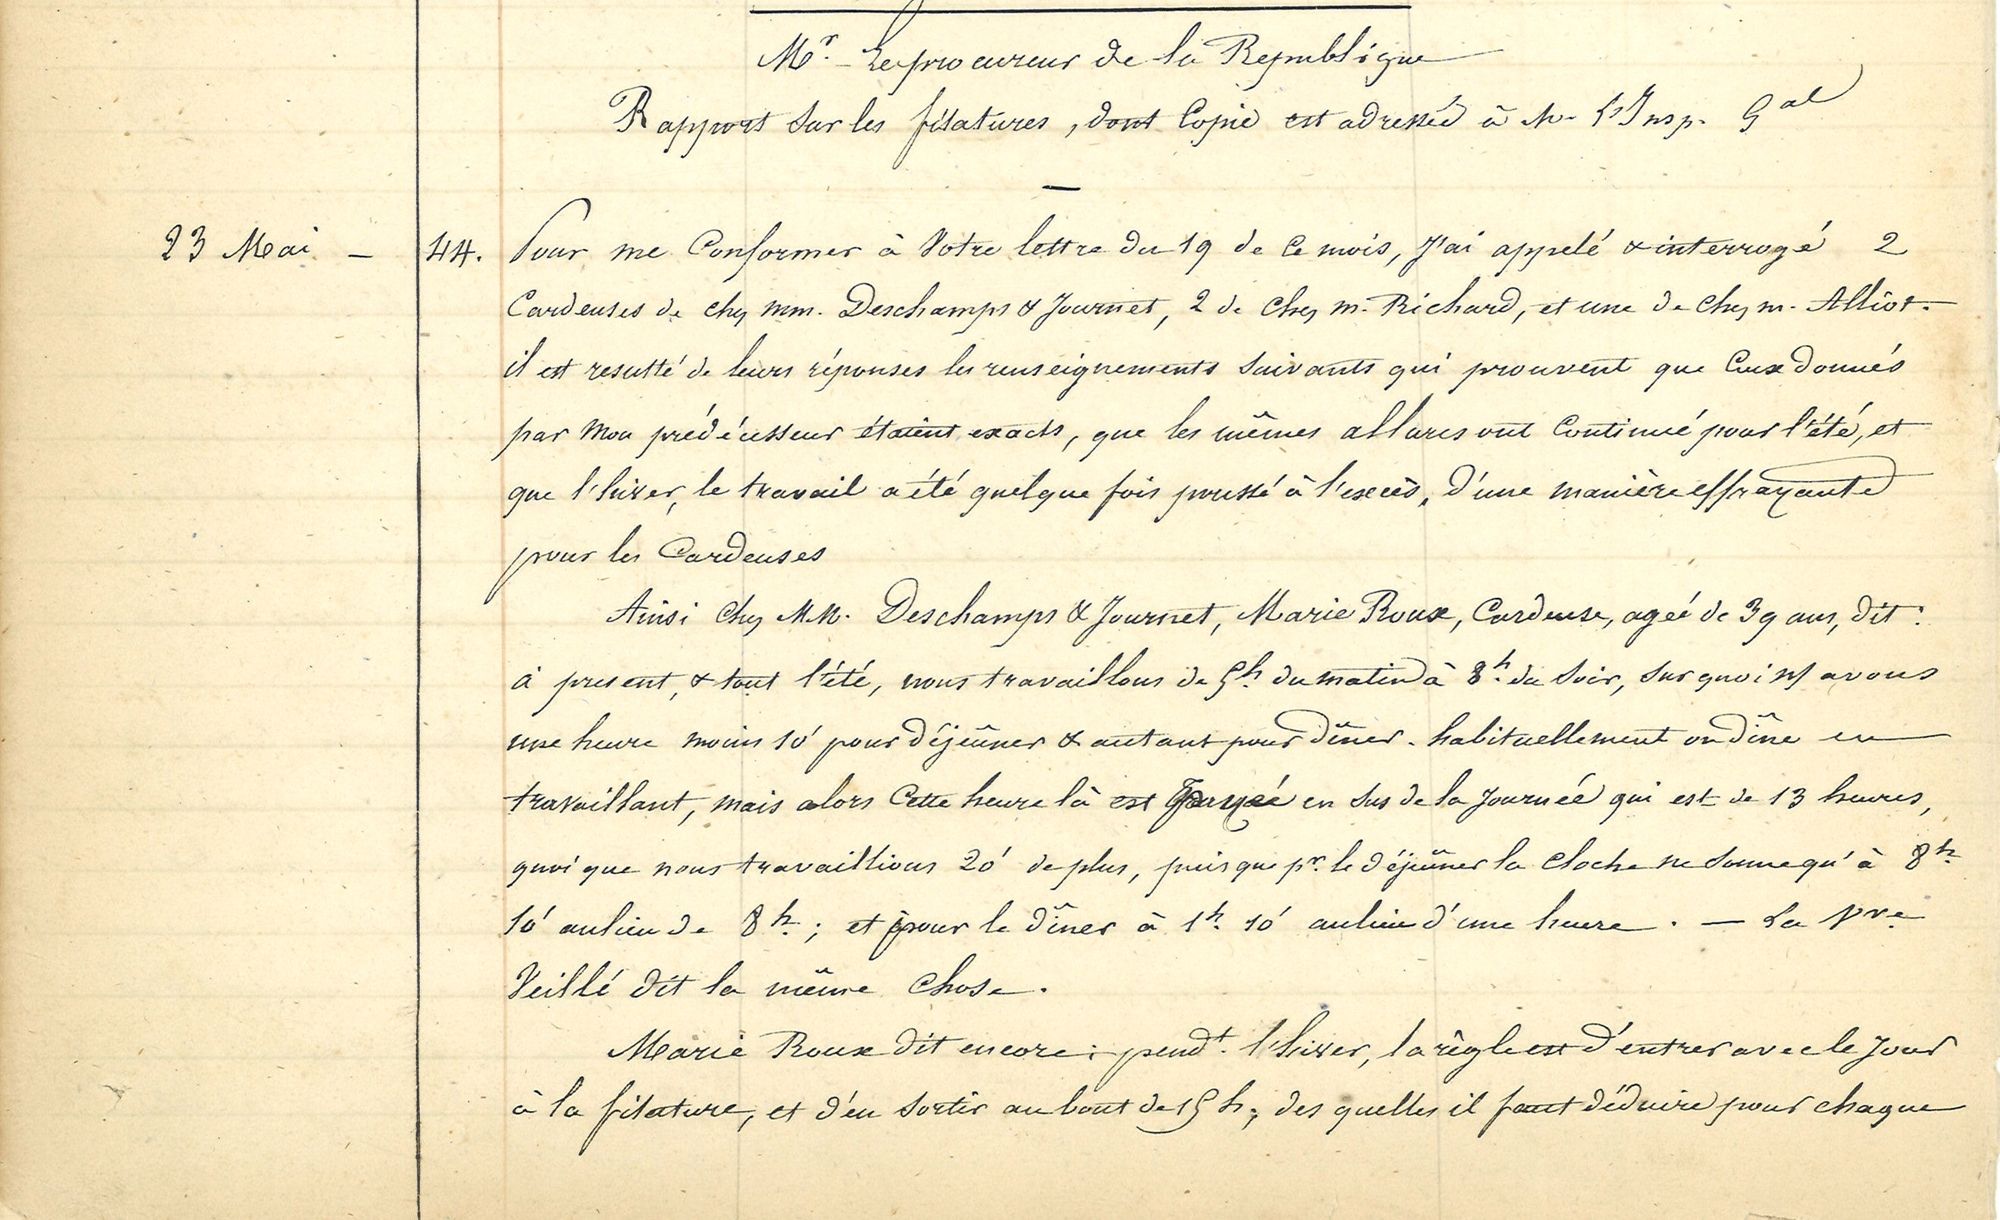 Mr. Le procureur de la République
Rapport sur les filatures, dont Copie est adressée à M. l'Insp. Gal
23 Mai - 44. Pour me Conformer à Votre lettre du 19 de Ce mois, J'ai appelé & interrogé 2
Cardeuses de chez mm. Deschamps & Journet, 2 de Chez m. Richard, et une de Chez m. Alliot.
il est resulté de leurs réponses les renseignements suivants qui prouvent que Ceux donnés
par mon prédécesseur étaient exacts, que les mêmes allures ont Continué pour l'été, et
que l'hiver, le travail a été quelque fois poussé à l'excès, d'une manière effrayante
pour les Cardeuses
Ainsi Chez MM. Deschamps & Journet, Marie Roux, Cardeuse, ageé de 39 ans, dit:
à present, & tout l'été, nous travaillons de 5h. du matin à 8h. du Soir, sur quoi ns/ avons
une heure moins 10' pour déjeûner & autant pour dîner. habituellement on dîne en
travaillant, mais alors Cette heure là est payée en sus de la Journée qui est de 13 heures,
quoi que nous travaillions 20' de plus, puis que pr. le déjeûner la Cloche ne sonne qu'à 8h.
10' au lieu de 8h.; et pour le dîner à 1h. 10' au lieu d'une heure. - La Vve
Veillé dit la même Chose.
Marie Roux dit encore: pendt. l'hiver, la règle est d'entrer avec le Jour
à la filature, et d'en sortir au bout de 15 h; des quelles il faut déduire pour chaque